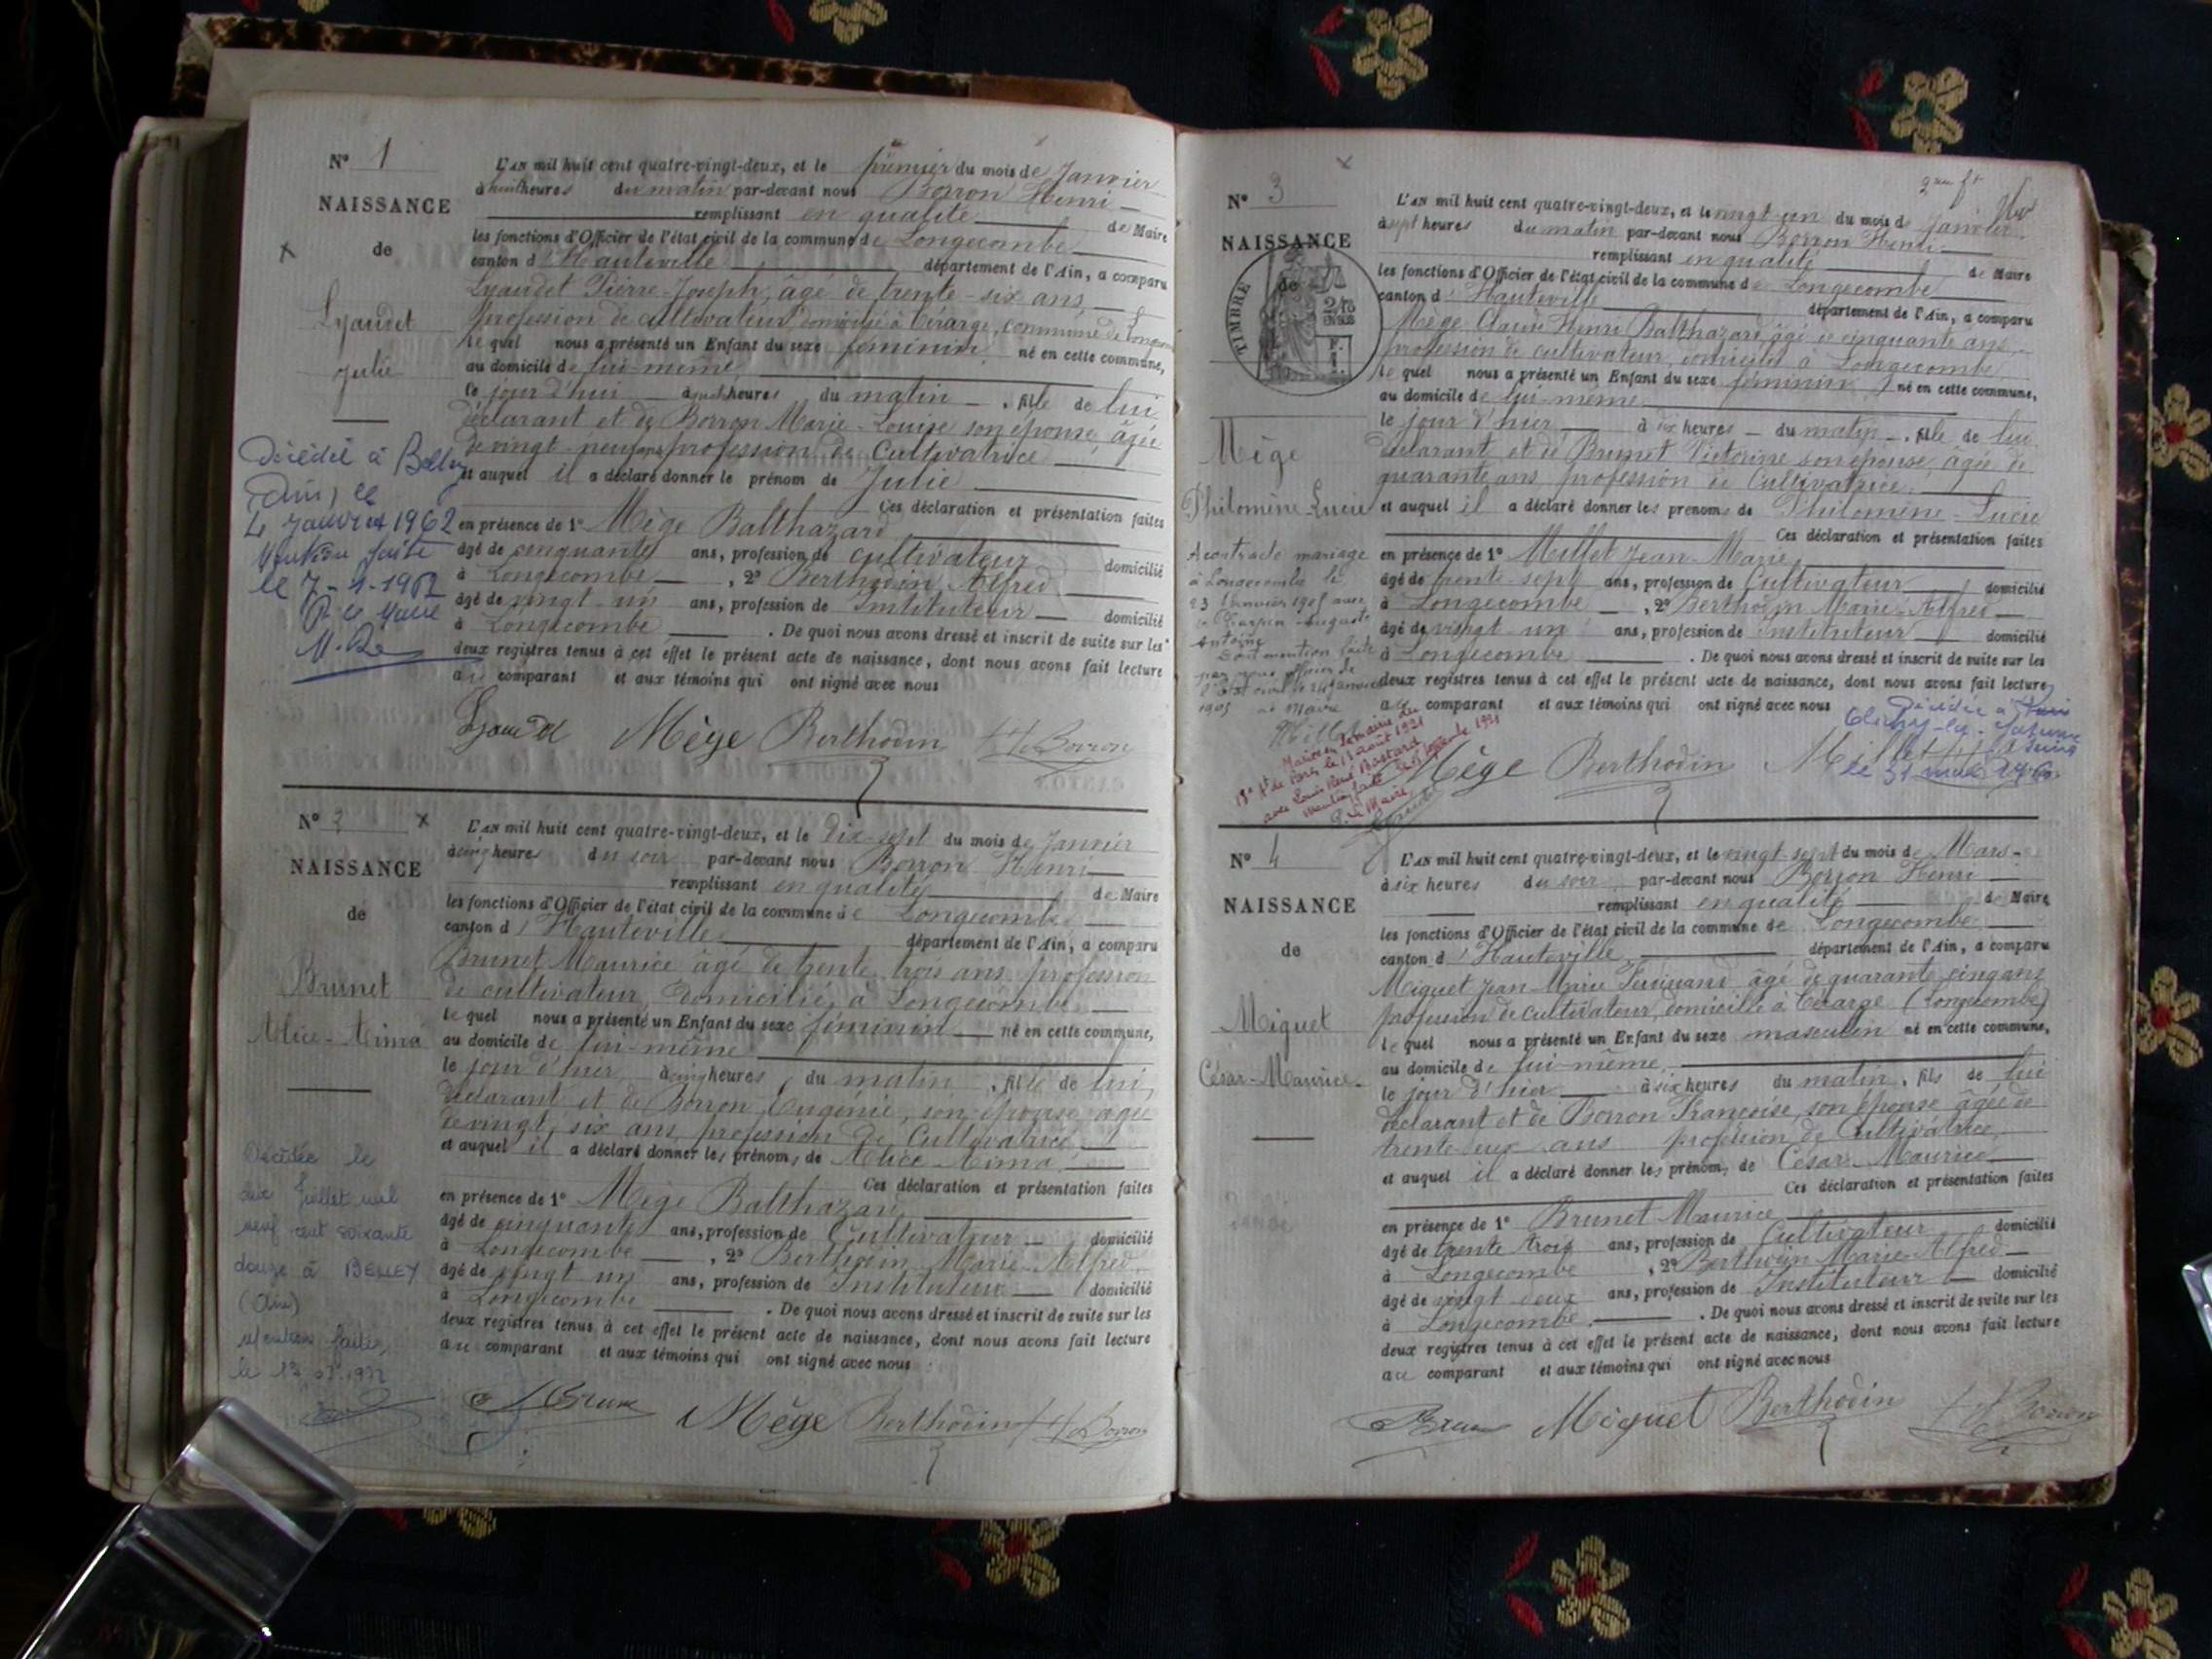 N° 1
NAISSANCE
de
Lyaudet
Julie
L'AN mil huit cent quatre-vingt-deux, et le premier du mois de Janvier
à huit heures du matin par-devant nous Borron Henri
remplissant en qualité de Maire
les fonctions d'Officier de l'état civil de la commune de Longecombe
canton d'Hauteville département de l'Ain, a comparu
Lyaudet Pierre-Joseph, âgé de trente-six ans
profession de cultivateur domicilié à Cérarge, commune de
lequel nous a présenté un Enfant du sexe féminin né en cette commune,
au domicile de lui-même
ce jour d'hui à heures du matin, fille de lui
déclarant et de Borron Marie-Louise son épouse, âgée
de vingt neuf ans profession de Cultivatrice
et auquel il a déclaré donner le prénom de Julie
Ces déclaration et présentation faites
en présence de 1° Mège Balthazard
âgé de cinquante ans, profession de cultivateur domicilié
à Longecombe, 2° Berthodin Alfred
âgé de vingt-un ans, profession de Instituteur domicilié
à Longecombe. De quoi nous avons dressé et inscrit de suite sur les
deux registres tenus à cet effet le présent acte de naissance, dont nous avons fait lecture
au comparant et aux témoins qui ont signé avec nous
Décédée à Belley
(Ain) le
4 janvier 1962
Mention faite
le 7-1-1962
P. le Maire
Lyaudet Mège Berthodin H. Borron
N° 2
NAISSANCE
de
Brunet
Alice-Aima
L'AN mil huit cent quatre-vingt-deux, et le dix-sept du mois de Janvier
à cinq heures du soir par-devant nous Borron Henri
remplissant en qualité de Maire
les fonctions d'Officier de l'état civil de la commune de Longecombe
canton d'Hauteville département de l'Ain, a comparu
Brunet Maurice âgé de trente trois ans profession
de cultivateur, domicilié à Longecombe
lequel nous a présenté un Enfant du sexe féminin né en cette commune,
au domicile de lui-même
le jour d'hier à cinq heures du matin, fille de lui,
déclarant et de Borron Eugénie, son épouse, âgée
de vingt six ans, profession de Cultivatrice
et auquel il a déclaré donner les prénoms de Alice-Aima
Ces déclaration et présentation faites
en présence de 1° Mège Balthazard
âgé de cinquante ans, profession de Cultivateur domicilié
à Longecombe, 2° Berthodin Marie-Alfred
âgé de vingt un ans, profession de Instituteur domicilié
à Longecombe. De quoi nous avons dressé et inscrit de suite sur les
deux registres tenus à cet effet le présent acte de naissance, dont nous avons fait lecture
au comparant et aux témoins qui ont signé avec nous
Décédée le
dix Juillet mil
neuf cent soixante
douze à BELLEY
(Ain)
Mention faite
le 13 07 1972
Mège Berthodin H. Borron
N° 3
NAISSANCE
de
TIMBRE
Mège
Philomène-Lucie
L'AN mil huit cent quatre-vingt-deux, et le vingt-un du mois de Janvier
à sept heures du matin par-devant nous Borron Henri
remplissant en qualité de Maire
les fonctions d'Officier de l'état civil de la commune de Longecombe
canton d'Hauteville département de l'Ain, a comparu
Mège Claude Henri Balthazard âgé de cinquante ans,
profession de cultivateur, domicilié à Longecombe
lequel nous a présenté un Enfant du sexe féminin né en cette commune,
au domicile de lui-même
le jour d'hier à dix heures du matin, fille de lui
déclarant et de Brunet Victorine son épouse, âgée de
quarante ans, profession de Cultivatrice
et auquel il a déclaré donner les prénoms de Philomène-Lucie
Ces déclaration et présentation faites
en présence de 1° Millet Jean-Marie
âgé de trente sept ans, profession de Cultivateur domicilié
à Longecombe, 2° Berthodin Marie-Alfred
âgé de vingt-un ans, profession de Instituteur domicilié
à Longecombe. De quoi nous avons dressé et inscrit de suite sur les
deux registres tenus à cet effet le présent acte de naissance, dont nous avons fait lecture
au comparant et aux témoins qui ont signé avec nous
A contracté mariage
à Longecombe le
23 Janvier 1905 avec
Auguste
Antoine
Dont mention faite
par nous officier de
l'état civil le 24 Janvier
1905 Maire
Mariée en la mairie du
19e Art de Paris le 13 août 1921
avec Louis René Bastard
mention faite le septembre 1921
P. le Maire
Décédée à
Clichy-la-Garenne
le 31 mai
Mège Berthodin Millet
N° 4
NAISSANCE
de
Miquet
César-Maurice
L'AN mil huit cent quatre-vingt-deux, et le vingt-sept du mois de Mars
à six heures du soir par-devant nous Borron Henri
remplissant en qualité de Maire
les fonctions d'Officier de l'état civil de la commune de Longecombe
canton d'Hauteville département de l'Ain, a comparu
Miquet Jean-Marie âgé de quarante cinq ans
profession de cultivateur, domicilié à Cérarge (Longecombe)
lequel nous a présenté un Enfant du sexe masculin né en cette commune,
au domicile de lui-même
le jour d'hier à six heures du matin, fils de lui
déclarant et de Borron Françoise, son épouse âgée de
trente deux ans profession de Cultivatrice
et auquel il a déclaré donner les prénoms de César-Maurice
Ces déclaration et présentation faites
en présence de 1° Brunet Maurice
âgé de trente trois ans, profession de Cultivateur domicilié
à Longecombe, 2° Berthodin Marie-Alfred
âgé de vingt deux ans, profession de Instituteur domicilié
à Longecombe. De quoi nous avons dressé et inscrit de suite sur les
deux registres tenus à cet effet le présent acte de naissance, dont nous avons fait lecture
au comparant et aux témoins qui ont signé avec nous
Miquet Berthodin H. Borron